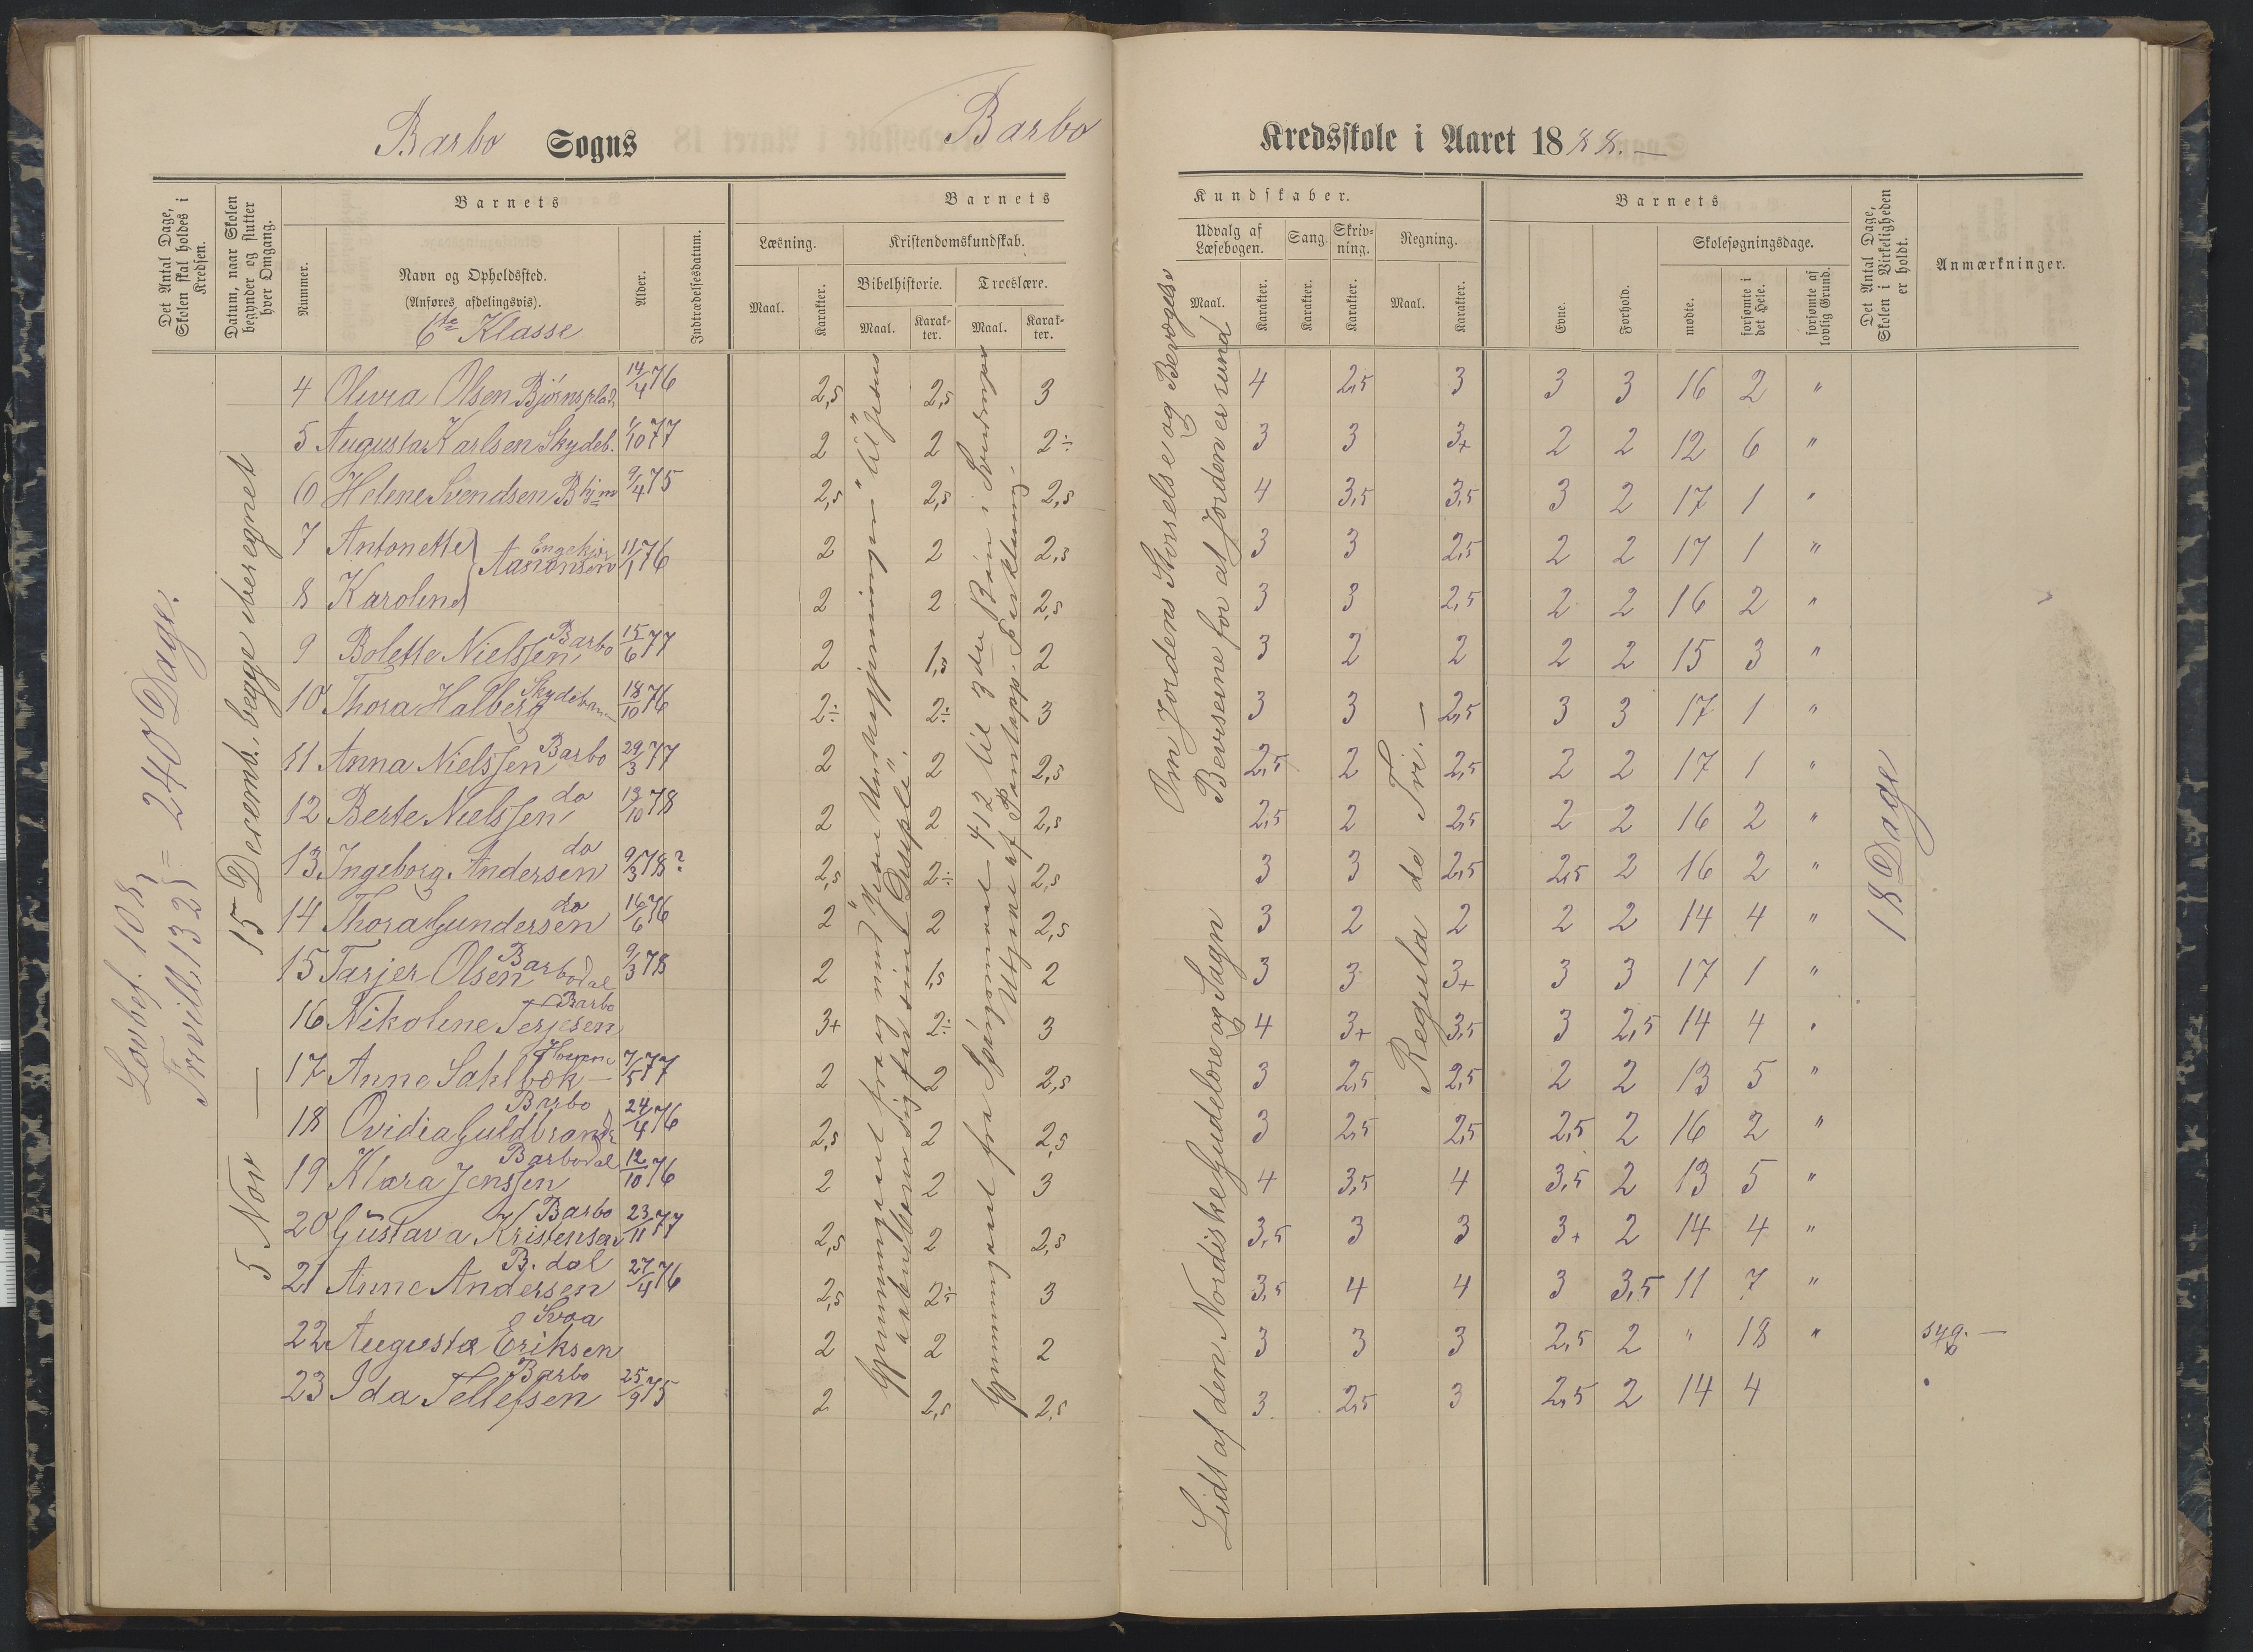 Barbo Sogns Barbo Kredsskole i Aaret 1888.—
Det Antal Dage, Skolen skal holdes i Kredsen.
Datum, naar Skolen begynder og slutter hver Omgang.
Barnets
Nummer.
Navn og Opholdssted.
(Anføres afdelingsvis).
6te Klasse
Alder.
Indtrædelsesdatum.
Barnets
Læsning.
Maal.
Karakter.
Kristendomskundskab.
Bibelhistorie.
Maal.
Karakter.
Troeslære.
Maal.
Karakter.
Kundskaber.
Udvalg af Læsebogen.
Maal.
Karakter.
Sang.
Karakter.
Skrivning.
Karakter.
Regning.
Maal.
Karakter.
Barnets
Evne.
Forhold.
Skolesøgningsdage.
mødte.
forsømte i det Hele.
forsømte af lovlig Grund.
Det Antal Dage, Skolen i Virkeligheden er holdt.
Anmærkninger.
Lovbef. 108
Frivill. 132 = 240 Dage.
5 Nov — 15 Decemb. begge iberegnet
Gjennemgaaet fra og med "Jesu Undergjerninger" til "Jesus
aabenbarer sig for sine Disiple".
Gjennemgaaet fra Spørgsmaal 412 til 3die Bøn i Sverdrups
Udgave af Pontopp. Forklaring.
Om Jordens Størrelse og Bevægelse
Beviserne for at Jorden er rund
Lidt af den Nordiske Gudelære og Sagn
Regula de Tri. —
18 Dage
4 Olivia Olsen Bjørnsplads 14/4 76 2,5 2,5 3 4 2,5 3 3 3 16 2 "
5 Augusta Karlsen Skydeb. 1/10 77 2 2 2÷ 3 3 3+ 2 2 12 6 "
6 Helene Svendsen 9/4 75 2,5 2,5 2,5 4 3,5 3,5 3 2 17 1 "
7 Antonette Aanonsen Engekjær 11/1 76 2 2 2,5 3 3 2,5 2 2 17 1 "
8 Karoline 2 2 2,5 3 3 2,5 2 2 16 2 "
9 Bolette Nielssen Barbo 15/6 77 2 1,5 2 3 2 2 2 2 15 3 "
10 Thora Halberg 18/10 76 2÷ 2÷ 3 3 3 2,5 3 3 17 1 "
11 Anna Nielssen Barbo 29/3 77 2 2 2,5 2,5 2 2,5 2 2 17 1 "
12 Berte Nielssen do 13/10 78 2 2 2,5 2,5 2 2,5 2 2 16 2 "
13 Ingeborg Andersen do 9/3 78? 2,5 2÷ 2,5 3 3 2,5 2,5 2 16 2 "
14 Thora Gundersen do 16/6 76 2 2 2,5 3 2 2 2 2 14 4 "
15 Tarjer Olsen Barbodal 9/3 78 2 1,5 2 3 3 3+ 3 3 17 1 "
16 Nikoline Terjesen Barbo 3+ 2÷ 3 4 3+ 3,5 3 2,5 14 4 "
17 Anne Sahlbæk 7/5 77 2 2 2,5 3 2,5 2,5 2 2 13 5 "
18 Ovidia Guldbrands Barbo 24/4 76 2,5 2 2,5 3 2,5 2,5 2,5 2 16 2 "
19 Klara Jenssen Barbodal 12/10 76 2 2 3 4 3,5 4 3,5 2 13 5 "
20 Gustava Kristensen Barbo 23/11 77 2,5 2 2,5 3,5 3 3 3+ 2 14 4 "
21 Anne Andersen B. dal 27/4 76 2,5 2÷ 3 3,5 4 4 3 3,5 11 7 "
22 Augusta Eriksen Svoa 2 2 2 3 3 3 2,5 2 " 18 " syg. —
23 Ida Tellefsen Barbo 25/9 75 2 2,5 2,5 3 2,5 3 2,5 2 14 4